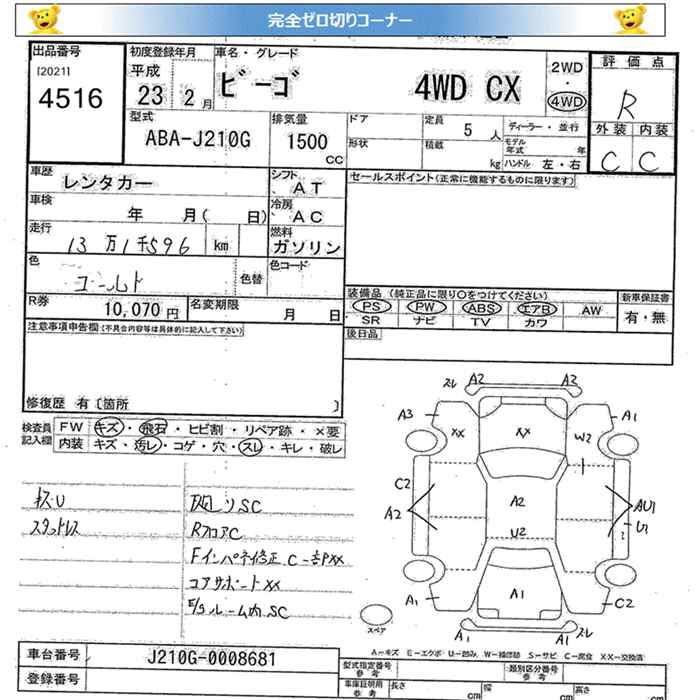 完全ゼロ切りコーナー
出品番号
[2021]
4516
初度登録年月
平成
23 2月
車名・グレード
ビーゴ 4WD CX
2WD
・
4WD
評価点
R
外装 内装
C C
型式
ABA-J210G
排気量
1500
CC
ドア
形状
定員 5人
積載 kg
ディーラー・並行
モデル年式 年
ハンドル 左・右
車歴
レンタカー
シフト
AT
車検
年 月( 日)
冷房
AC
走行
13万1千596 km
燃料
ガソリン
色
ゴールド
色替
色コード
R券
10,070円
名変期限
月 日
セールスポイント(正常に機能するものに限ります)
装備品(純正品に限り○をつけてください)
PS PW ABS エアB AW
SR ナビ TV カワ
新車保証書
有・無
後日品
注意事項申告欄(不具合内容等は具体的に記入して下さい)
修復歴 有〔箇所 〕
検査員記入欄
FW キズ・飛石・ヒビ割・リペア跡・×要
内装 キズ・汚レ・コゲ・穴・スレ・キレ・破レ
キズU
スタッドレス
下廻しソSC
RフロアC
Fインパネ修正 C一部XX
コアサポートXX
E/gルーム内SC
スレ A2 A2 スレ
A3 XX XX W2 A1
C2 A2 A2 AU1 U1
U2
A1 A1 C2
A1 A1
スペア
A-キズ E-エクボ U-凹み W-補修跡 S-サビ C-腐食 XX-交換済
車台番号
J210G-0008681
登録番号
型式指定番号 参考
類別区分番号 参考
車庫証明用 参考
長さ cm
幅 cm
高さ cm